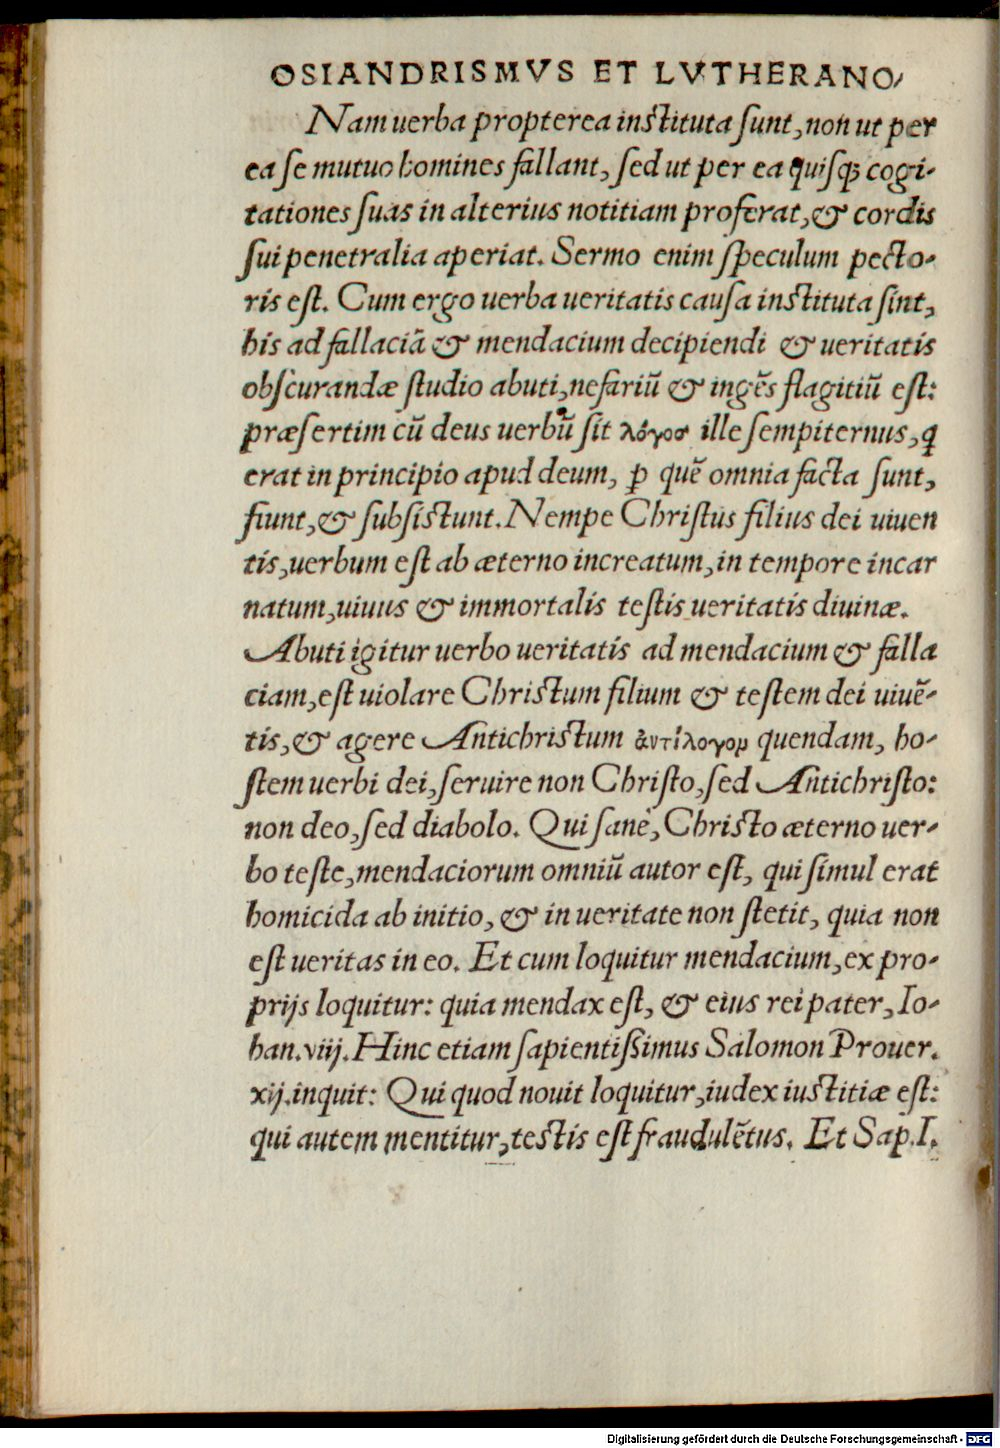 OSIANDRISMVS ET LVTHERANO⸗
Nam uerba propterea instituta sunt, non ut per
ea se mutuo homines fallant, sed ut per ea quisqꝫ cogi⸗
tationes suas in alterius notitiam proferat, & cordis
sui penetralia aperiat. Sermo enim speculum pecto⸗
ris est. Cum ergo uerba ueritatis causa instituta sint,
his ad fallaciã & mendacium decipiendi & ueritatis
obscurandæ studio abuti, nefariũ & ingẽs flagitiũ est:
præsertim cũ deus uerbũ sit λόγοσ ille sempiternus, q
erat in principio apud deum, ꝑ quẽ omnia facta sunt,
fiunt, & subsistunt. Nempe Christus filius dei uiuen
tis, uerbum est ab æterno increatum, in tempore incar
natum, uiuus & immortalis testis ueritatis diuinæ.
Abuti igitur uerbo ueritatis ad mendacium & falla
ciam, est uiolare Christum filium & testem dei uiuẽ⸗
tis, & agere Antichristum ἀντίλογον quendam, ho⸗
stem uerbi dei, seruire non Christo, sed Antichristo:
non deo, sed diabolo. Qui sanè, Christo æterno uer⸗
bo teste, mendaciorum omniũ autor est, qui simul erat
homicida ab initio, & in ueritate non stetit, quia non
est ueritas in eo. Et cum loquitur mendacium, ex pro⸗
prijs loquitur: quia mendax est, & eius rei pater, Io⸗
han.viij. Hinc etiam sapientißimus Salomon Prouer.
xij. inquit: Qui quod nouit loquitur, iudex iustitiæ est:
qui autem mentitur, testis est fraudulẽtus. Et Sap. I.
Digitalisierung gefördert durch die Deutsche Forschungsgemeinschaft - DFG